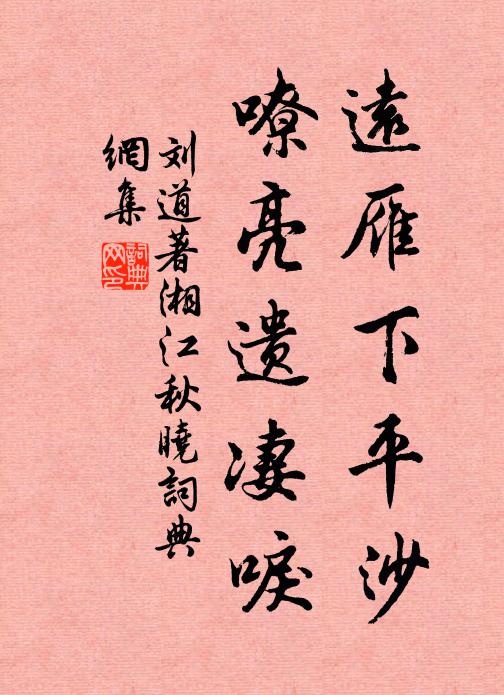 遠雁下平沙
嘹亮遺淒唳
刘道著湘江秋曉詞典
網集
詞典
网印